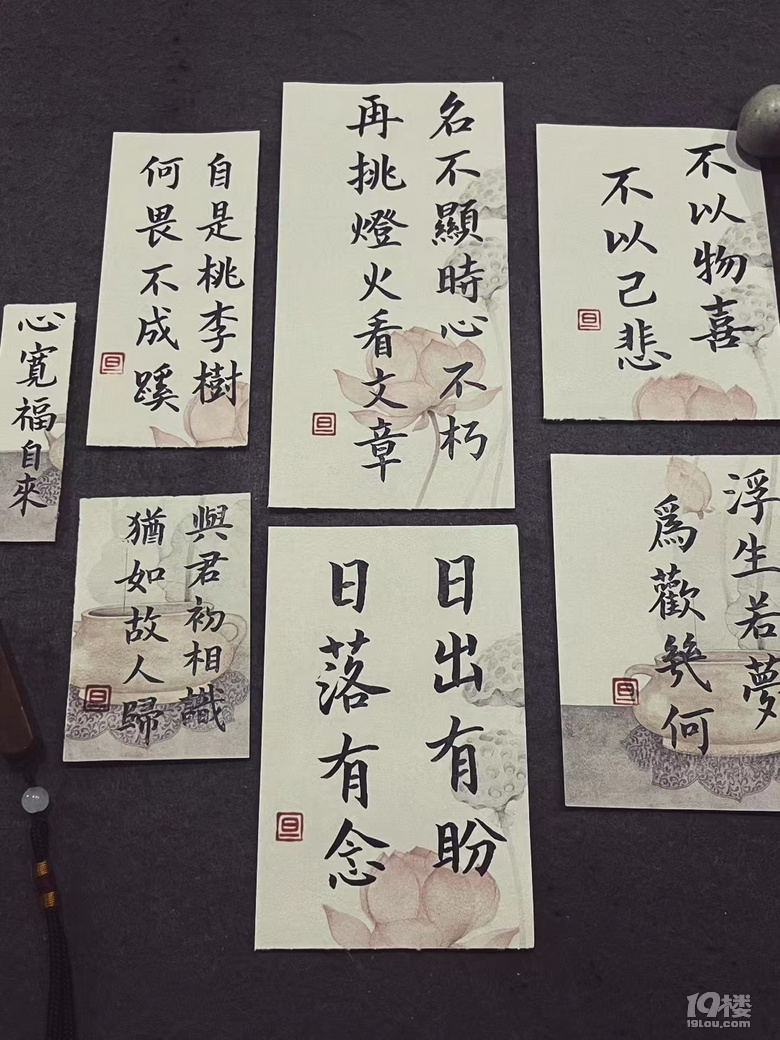 心寬福自來
自是桃李樹
何畏不成蹊
名不顯時心不朽
再挑燈火看文章
不以物喜
不以己悲
與君初相識
猶如故人歸
日出有盼
日落有念
浮生若夢
爲歡幾何
旦
旦
旦
旦
旦
旦
19楼
19lou.com